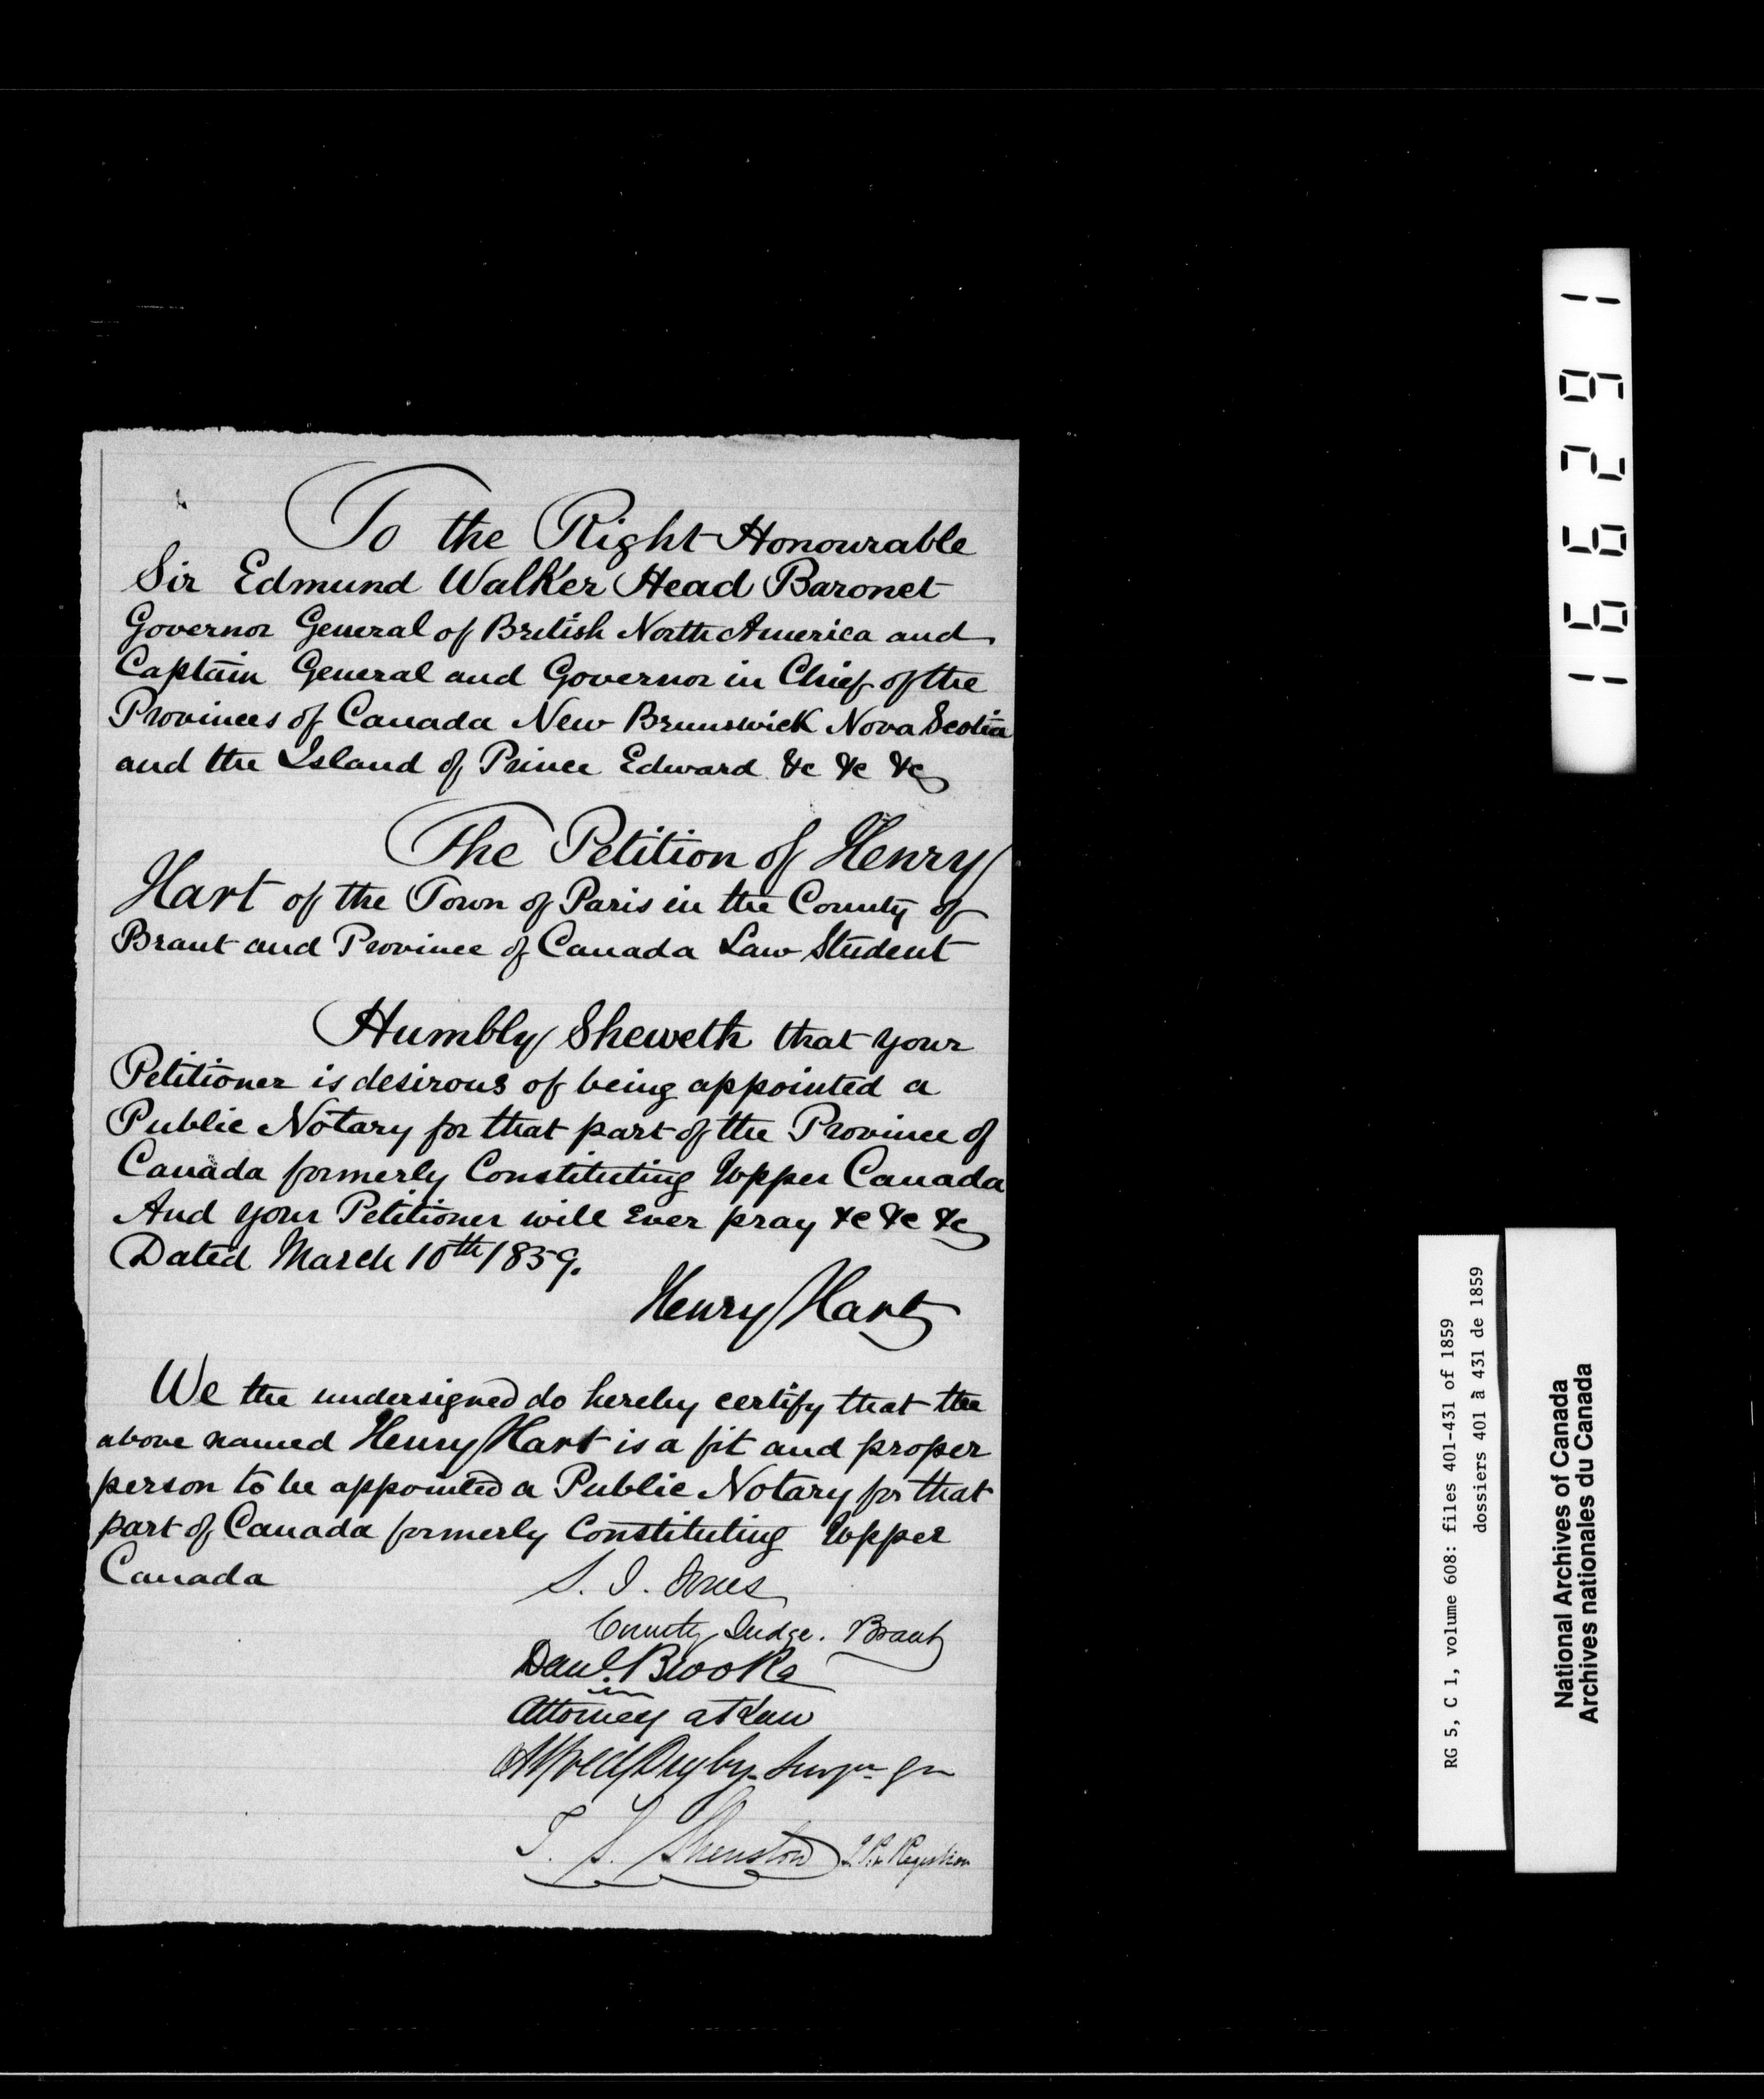 To the Right Honourable
Sir Edmund Walker Head Baronet
Governor General of British North America and
Captain General and Governor in Chief of the
Provinces of Canada New Brunswick Nova Scotia
and the Island of Prince Edward &c &c &c
The Petition of Henry
Hart of the Town of Paris in the County of
Brant and Province of Canada Law Student
Humbly Sheweth that your
Petitioner is desirous of being appointed a
Public Notary for that part of the Province of
Canada formerly Constituting Upper Canada
And your Petitioner will Ever pray &c &c &c
Dated March 10th 1859.
Henry Hart
We the undersigned do hereby certify that the
above named Henry Hart is a fit and proper
person to be appointed a Public Notary for that
part of Canada formerly Constituting Upper
Canada
S. J. Jones
County Judge. Brant
Danl. Brooke
Attorney at Law
Digby
T. S. Shenston J.P. & Registrar
166291
RG 5, C 1, volume 608: files 401-431 of 1859
dossiers 401 à 431 de 1859
National Archives of Canada
Archives nationales du Canada